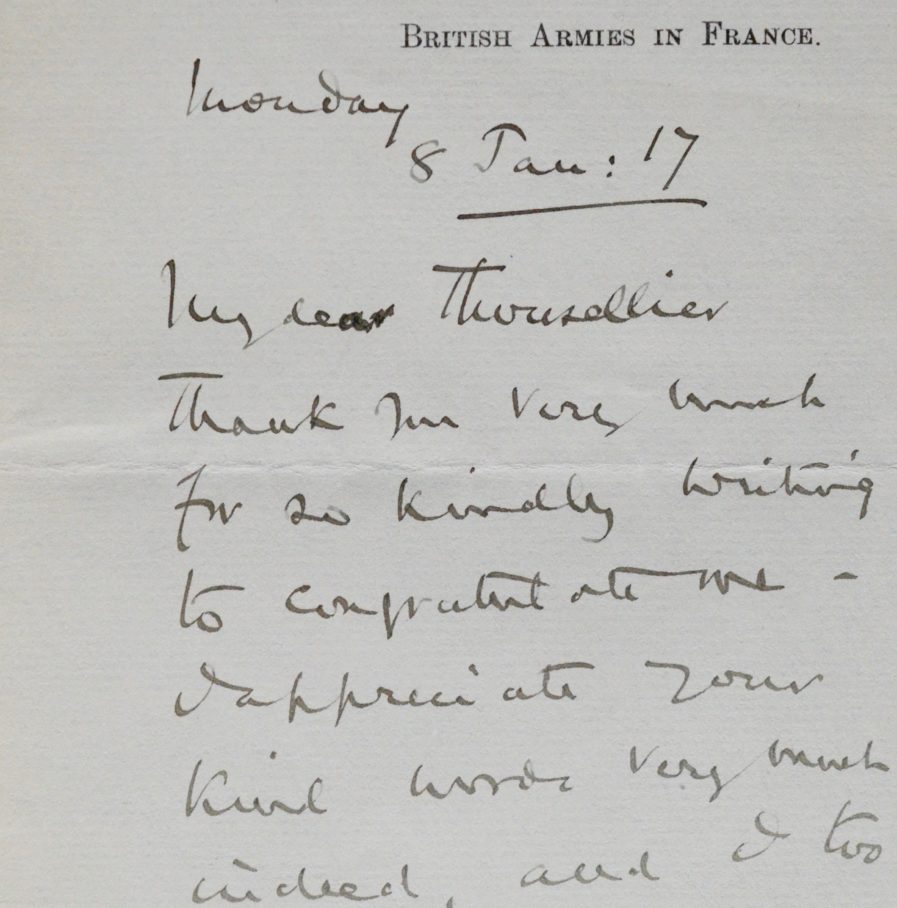 BRITISH ARMIES IN FRANCE.
Monday
8 Jan: 17
My dear Thousellier
Thank you very much
for so kindly writing
to congratulate me -
I appreciate your
kind words very much
indeed, and I too